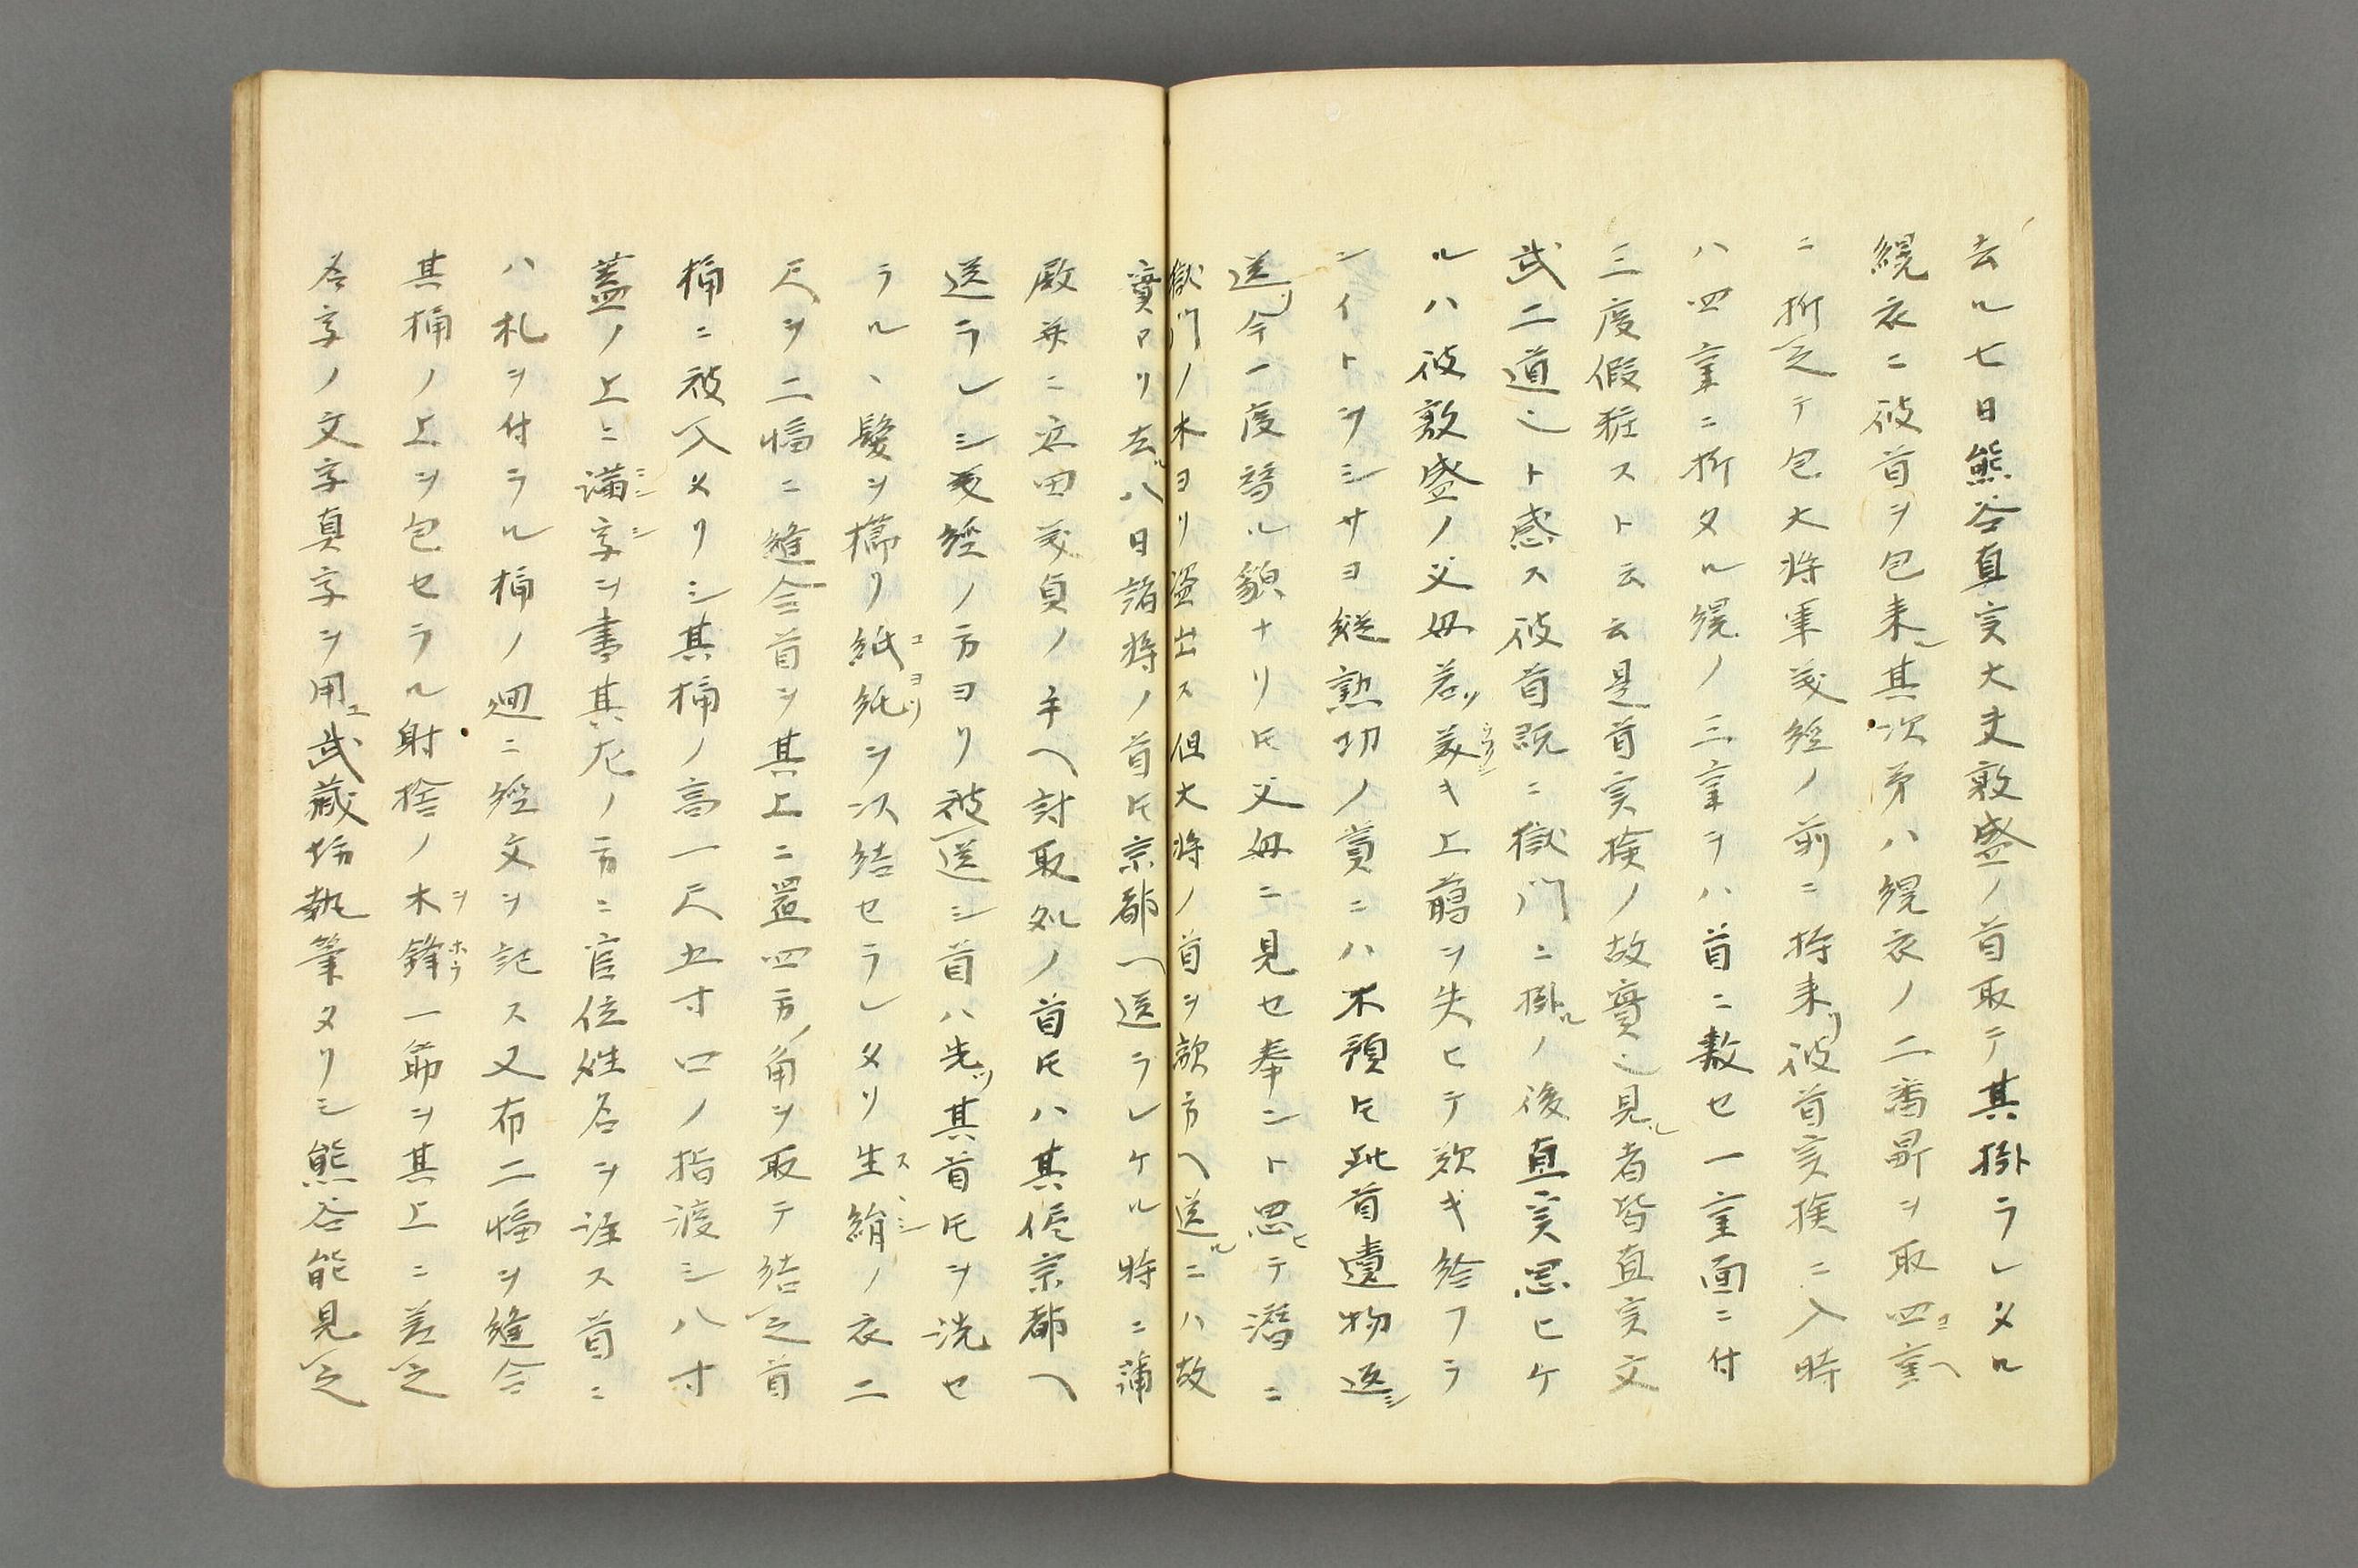 去ル七日熊谷直実大夫敦盛ノ首取テ其掛ラレタル
縨衣ニ彼首ヲ包来ル其次第ハ縨衣ノ二番畀ヲ取四重ヘ
ニ折之テ包大将軍義経ノ前ニ持来リ彼首実検ニ入時
ハ四重ニ折タル縨ノ三重ヲハ首ニ敷セ一重面ニ付
三度假粧スト云云是首実検ノ故實也見ル者皆直実文
武二道也ト感ス彼首既ニ獄門ニ掛ルノ後直実思ヒケ
ルハ彼敦盛ノ父母若ソノ義キ上﨟ヲ失ヒテ歎キ給フラ
ンイトヲシサヨ縦勲功ノ賞ニハ不預トモ此首遺物返シ
送リ今一度替ル貌ナリトモ父母ニ見セ奉ント思ヒテ潜ニ
獄門ノ木ヨリ盗出ス但大将ノ首ヲ敵方ヘ送ルニハ故
實アリ去ル八日諸将ノ首トモ京都ヘ送ラレケル時ニ蒲
殿并ニ安田義貞ノ手ヘ討取処ノ首トモハ其侭京都ヘ
送ラレシ義経ノ方ヨリ被送シ首ハ先ツ其首トモヲ洗セ
ラル、髪ヲ攦リ紙紙ヲ以結セラレタリ生絹ノ衣二
尺ヲ二幅ニ縫合首ヲ其上ニ置四方ノ角ヲ取テ結之首
桶ニ被入タリシ其桶ノ高一尺五寸口ノ指渡シ八寸
蓋ノ上ニ満字ヲ書其左ノ方ニ官位姓名ヲ註ス首ニ
ハ札ヲ付ラル桶ノ廻ニ經文ヲ記ス又布二幅ヲ縫合
其桶ノ上ヲ包セラル射捨ノ木鋒一筋ヲ其上ニ差之
各字ノ文字真字ヲ用ユ武蔵坊執筆タリシ熊谷能見之